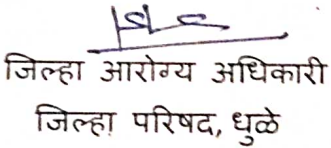 जिल्हा आरोग्य अधिकारी
जिल्हा परिषद, धुळे